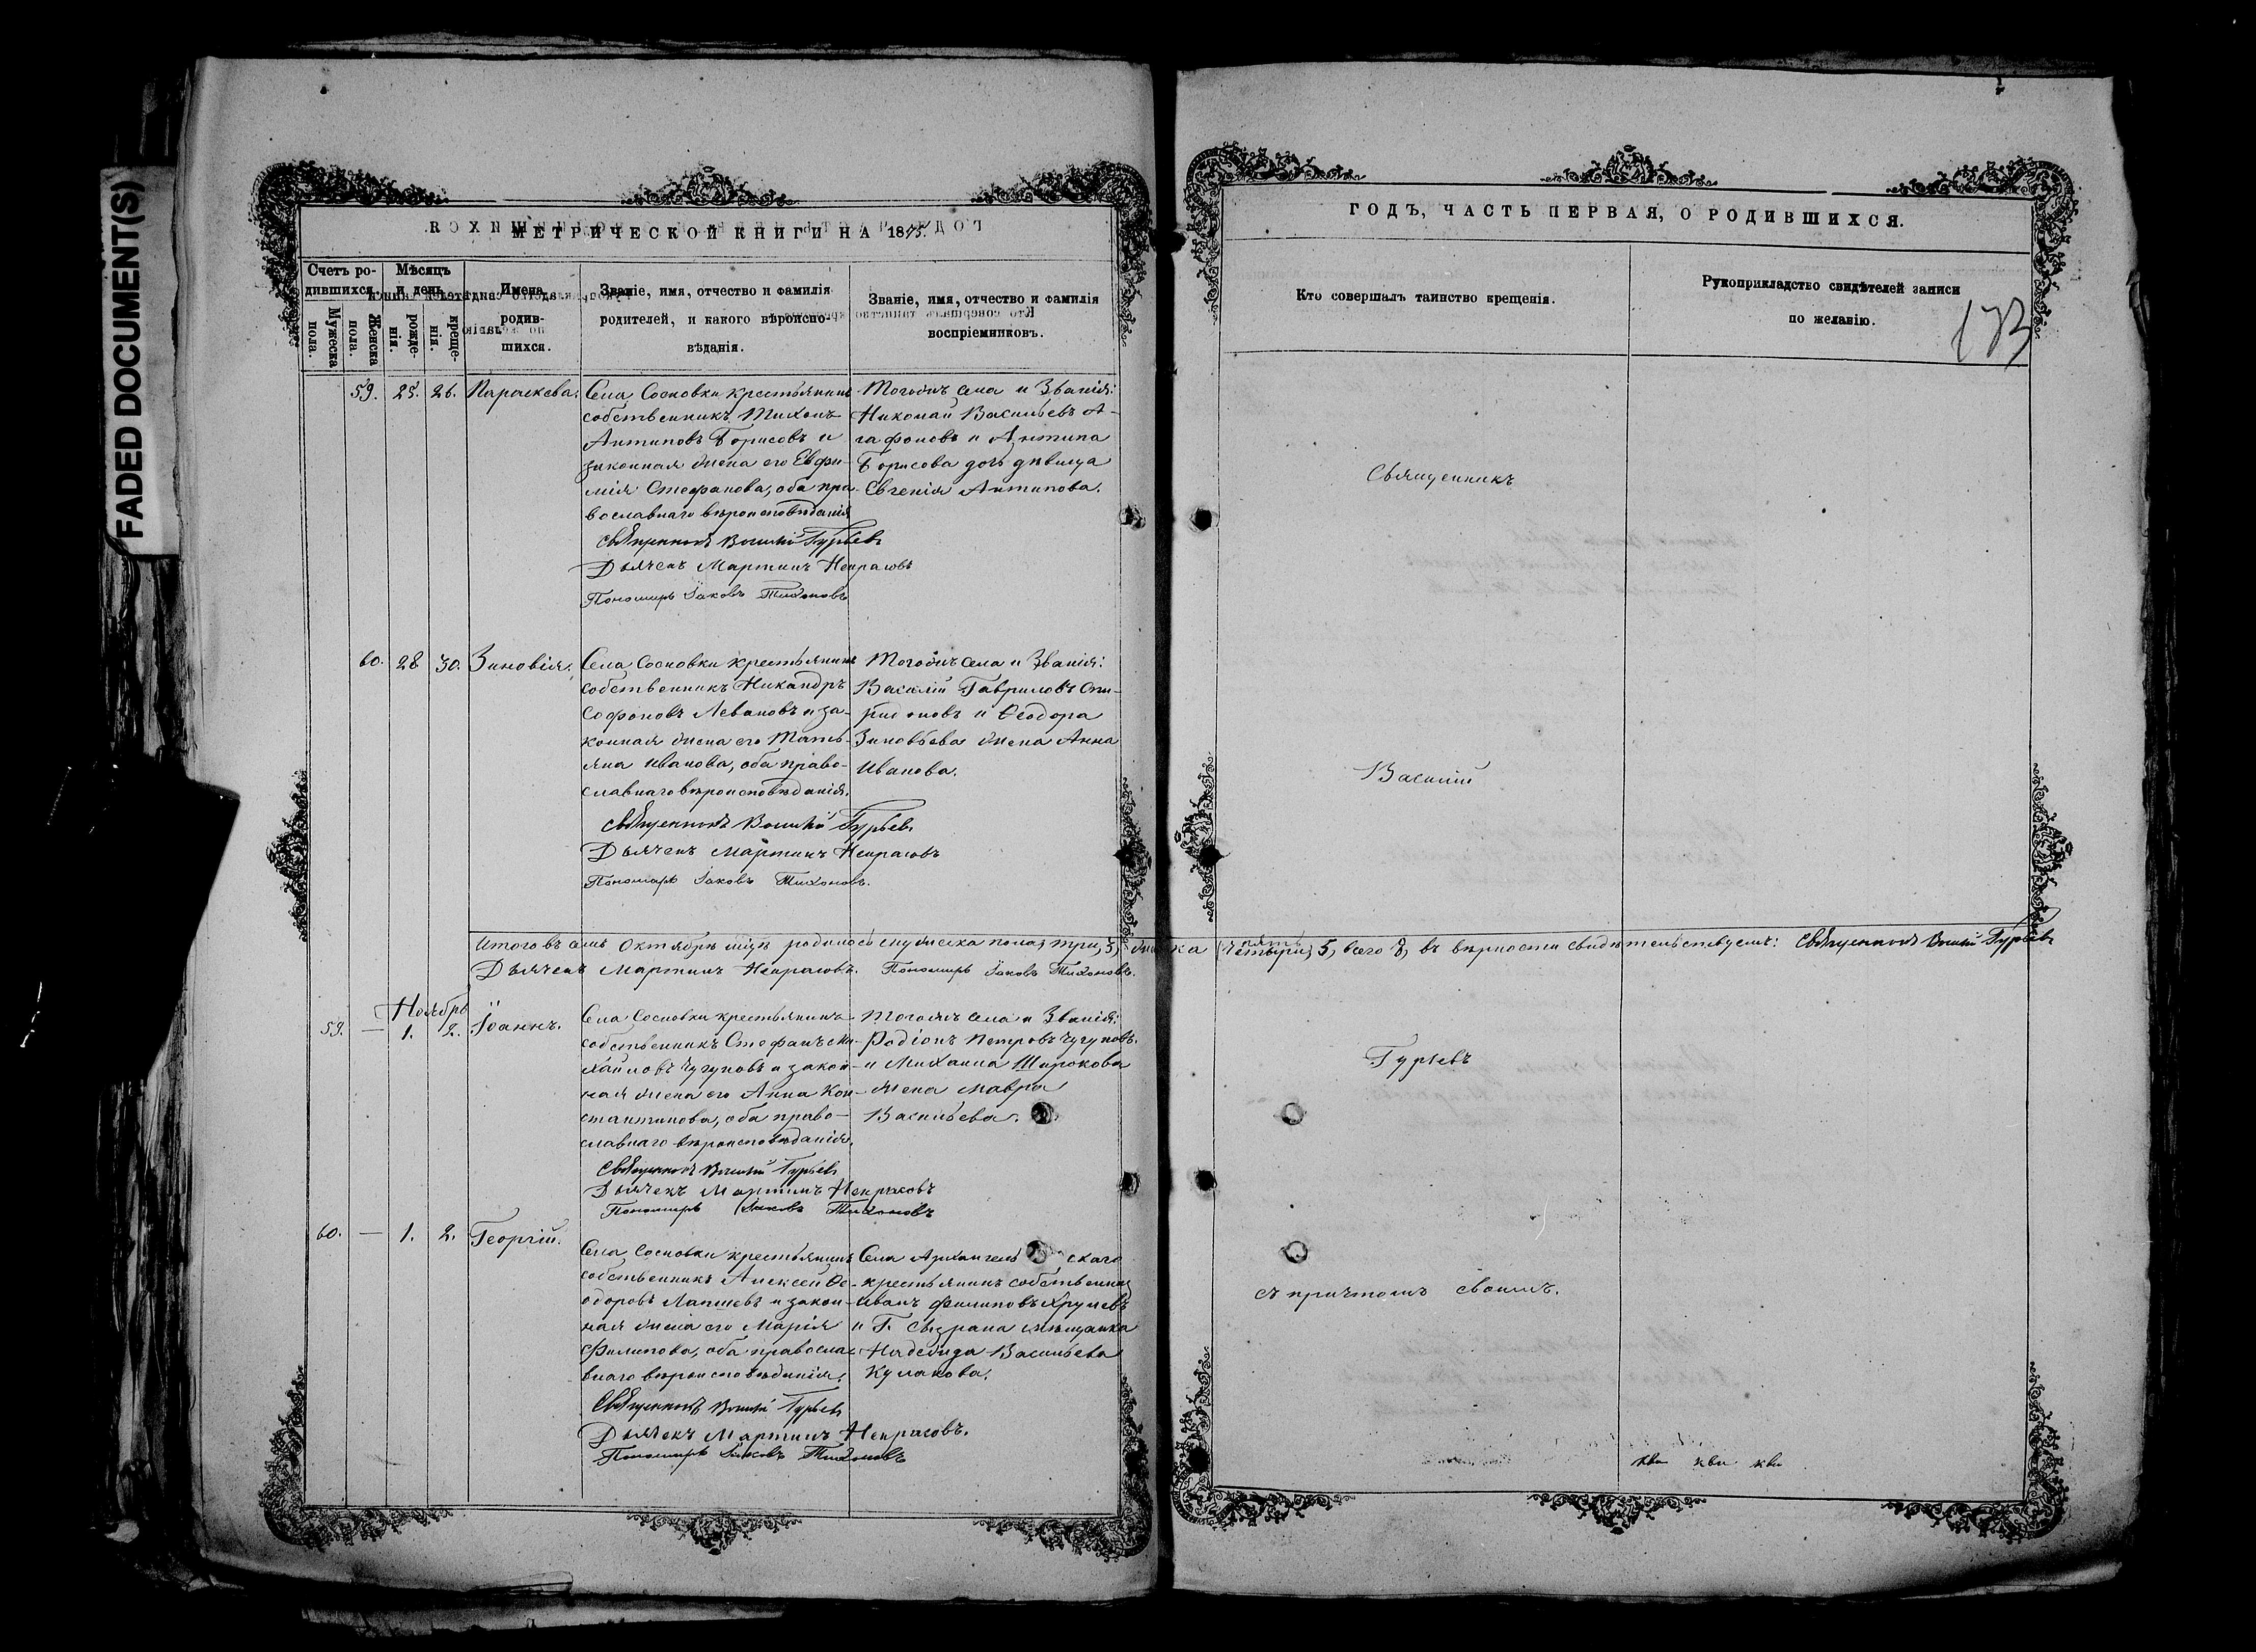 FADED DOCUMENT(S)
МЕТРИЧЕСКОЙ КНИГИ НА 1875.
Счетъ родившихся.
Мѣсяцъ и день
Имена родившихся.
Званіе, имя, отчество и фамилія
родителей, и какого вѣроиспо-
вѣданія.
Званіе, имя, отчество и фамилія
воспріемниковъ.
Мужеска пола.
Женска пола.
рожденія.
крещенія.
59. 25. 26. Параскева.
Села Сосновки крестьянинъ
собственникъ Тихонъ
Антиповъ Борисовъ и
законная жена его Евфи-
мія Стефанова, оба пра-
вославнаго вѣроисповѣданія
Тогожъ села и Званія:
Николай Васильевъ А-
гафоновъ и Антипа
Борисова дочь дѣвица
Евгенія Антипова.
Священникъ Василій Гурьевъ
Дьячекъ Мартинъ Некрасовъ
Пономарь Іаковъ Тихоновъ
60. 28 30. Зиновія.
Села Сосновки крестьянинъ
собственникъ Никандръ
Софоновъ Левановъ и за-
конная жена его Тать-
яна Иванова, оба право-
славнаго вѣроисповѣданія.
Тогожъ села и Званія:
Василій Гавриловъ Спи-
ридоновъ и Ѳеодора
Зиновьева жена Анна
Иванова.
Священникъ Василій Гурьевъ
Дьячекъ Мартинъ Некрасовъ
Пономарь Іаковъ Тихоновъ.
Итого въ семъ Октябрѣ мцѣ родилось мужеска пола три, 3,
Дьячекъ Мартинъ Некрасовъ. Пономарь Іаковъ Тихоновъ.
Ноябрь
59. — 1. 2. Іоаннъ.
Села Сосновки крестьянинъ
собственникъ Стефанъ Ми-
хайловъ Чугуновъ и закон-
ная жена его Анна Кон-
стантинова, оба право-
славнаго вѣроисповѣданія.
Тогожъ села и Званія:
Родіонъ Петровъ Чугуновъ.
и Михаила Широкова
жена Мавра
Васильева.
Священникъ Василій Гурьевъ
Дьячекъ Мартинъ Некрасовъ
Пономарь Іаковъ Тихоновъ
60. — 1. 2. Георгій.
Села Сосновки крестьянинъ
собственникъ Алексей Ѳе-
одоровъ Лапшевъ и закон-
ная жена его Марія
Филипова, оба правосла-
внаго вѣроисповѣданія.
Села Архангельскаго
крестьянинъ собственникъ
Иванъ Филиповъ
и Г. Сызрана мѣщанка
Надежда Васильева
Кулакова.
Священникъ Василій Гурьевъ
Дьячекъ Мартинъ Некрасовъ.
Пономарь Іаковъ Тихоновъ
ГОДЪ, ЧАСТЬ ПЕРВАЯ, О РОДИВШИХСЯ.
Кто совершалъ таинство крещенія.
Рукоприкладство свидѣтелей записи
по желанію.
Священникъ
Василій
пять
четыре, 5, всего 8, въ вѣрности свидѣтельствуемъ: Священникъ Василій Гурьевъ
Гурьевъ
съ причтомъ своимъ.